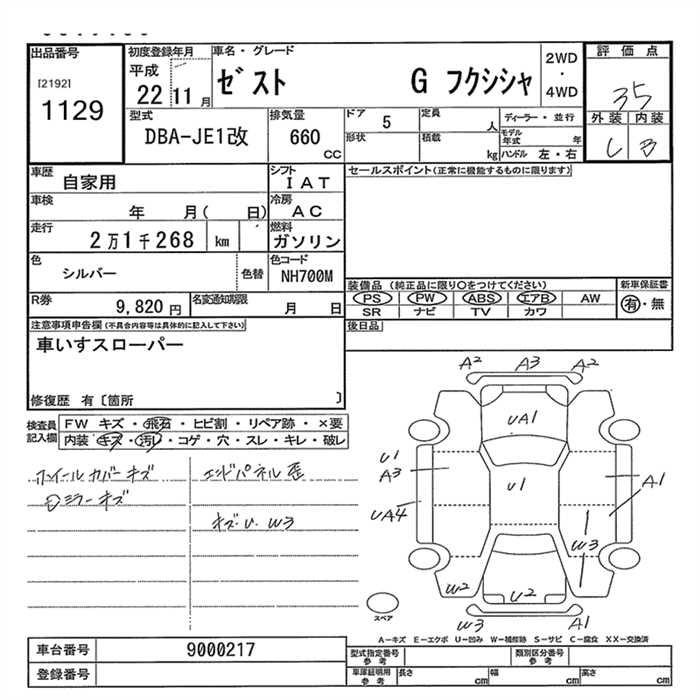 出品番号
[2192]
1129
初度登録年月
平成
22 11月
車名・グレード
ゼスト G フクシシャ
2WD
・
4WD
評価点
35
外装 内装
C B
型式
DBA-JE1改
排気量
660
CC
ドア 5
定員
人
ディーラー・並行
形状
積載
kg
モデル年式
年
ハンドル 左・右
車歴
自家用
シフト
IAT
セールスポイント(正常に機能するものに限ります)
車検
年 月( 日)
冷房
AC
走行
2万1千268 km
燃料
ガソリン
色
シルバー
色替
色コード
NH700M
装備品 (純正品に限り○をつけてください)
新車保証書
PS PW ABS エアB AW
有・無
SR ナビ TV カワ
R券
9,820円
名変通知期限
月 日
後日品
注意事項申告欄(不具合内容等は具体的に記入して下さい)
車いすスローパー
修復歴 有〔箇所 〕
検査員記入欄
FW キズ・飛石・ヒビ割・リペア跡・×要
内装・キズ・汚レ・コゲ・穴・スレ・キレ・破レ
ホイールカバーキズ
エンドパネル歪
Dミラーキズ
キズ・U・W3
A2 A3 A2
UA1
U1
A3
U1
A1
UA4
W3
W2
U2
W3
A1
スペア
A-キズ E-エクボ U-凹み W-補修跡 S-サビ C-腐食 XX-交換済
車台番号
9000217
登録番号
型式指定番号
参考
類別区分番号
参考
車庫証明用
参考
長さ
cm
幅
cm
高さ
cm